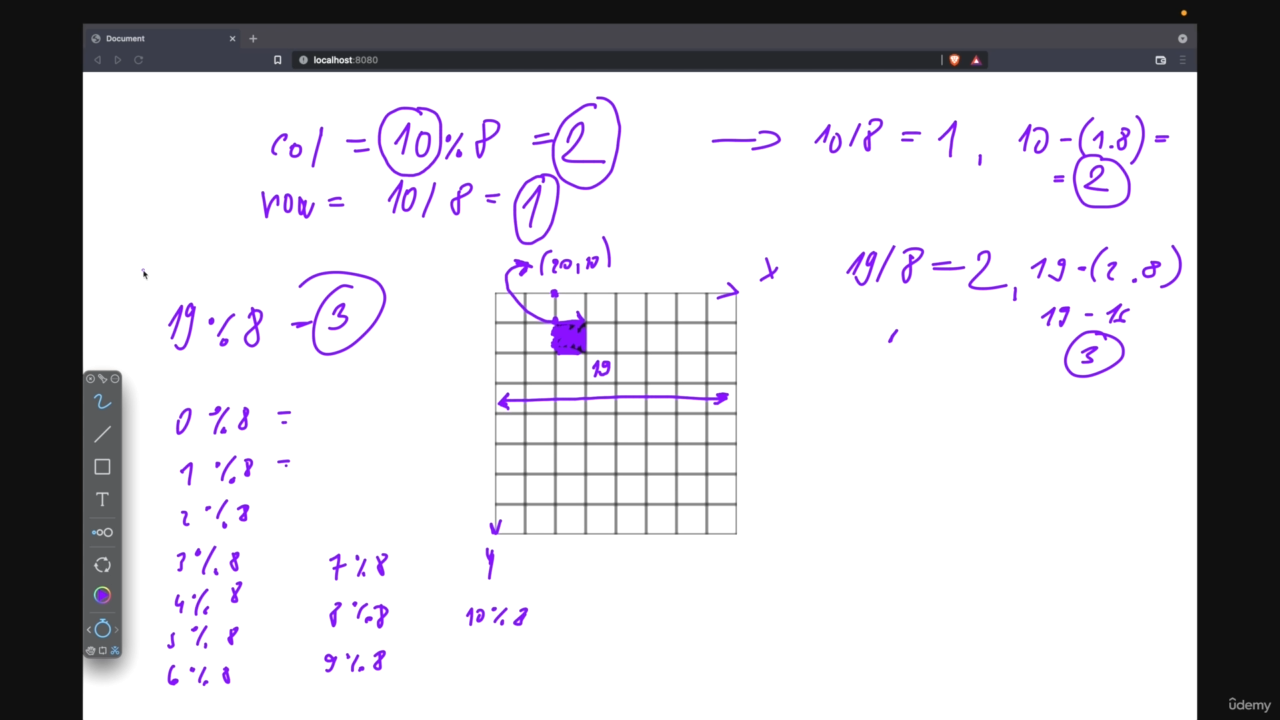 Document
localhost:8080
col = 10 % 8 = 2 → 10/8 = 1, 10-(1.8) =
= 2
row = 10/8 = 1
(20,10)
x
19/8 = 2, 19-(2.8)
19 - 16
3
19 % 8 = 3
19
0 % 8 =
1 % 8 =
2 % 8
3 % 8
4 % 8
5 % 8
6 % 8
7 % 8
8 % 8
9 % 8
y
10 % 8
T
ûdemy